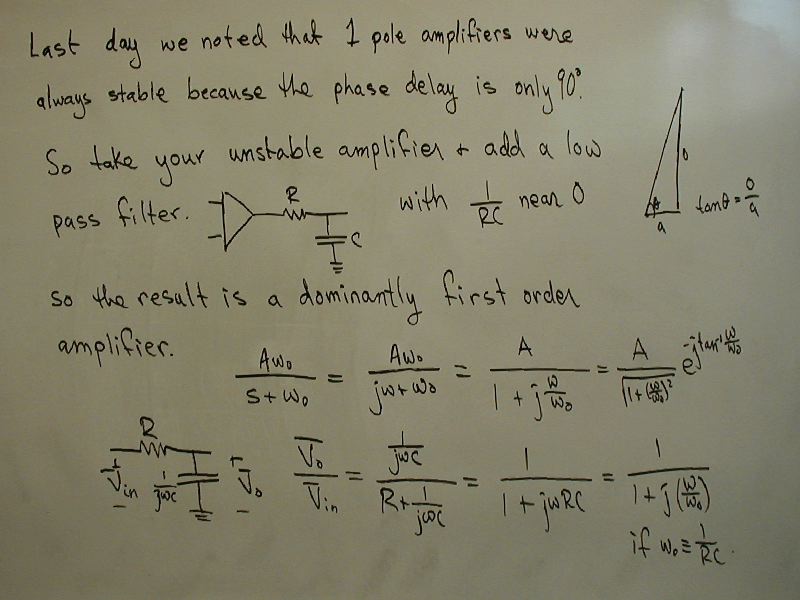 Last day we noted that 1 pole amplifiers were
always stable because the phase delay is only 90°.
So take your unstable amplifier + add a low
pass filter. R C with 1/RC near 0
θ o a tanθ = o/a
so the result is a dominantly first order
amplifier.
Aω₀/(s+ω₀) = Aω₀/(jω+ω₀) = A/(1+j ω/ω₀) = A/√(1+(ω/ω₀)²) e^(-j tan⁻¹ ω/ω₀)
R + V̄in - 1/jωC + V̄o - V̄o/V̄in = (1/jωC)/(R+1/jωC) = 1/(1+jωRC) = 1/(1+j(ω/ω₀))
if ω₀ ≡ 1/RC.